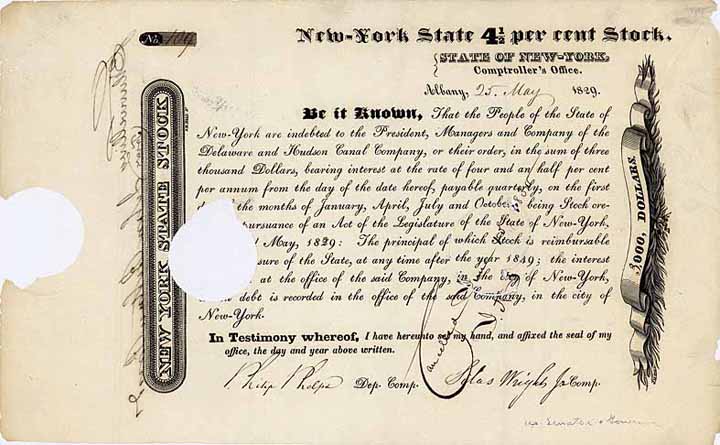 No. 109
New-York State 4½ per cent Stock.
STATE OF NEW-YORK,
Comptroller's Office.
Albany, 25. May 1829.
Be it Known, That the People of the State of
New-York are indebted to the President, Managers and Company of the
Delaware and Hudson Canal Company, or their order, in the sum of three
thousand Dollars, bearing interest at the rate of four and an half per cent
per annum from the day of the date hereof, payable quarterly, on the first
day of the months of January, April, July and October; being Stock cre-
pursuance of an Act of the Legislature of the State of New-York,
May, 1829: The principal of which Stock is reimbursable
sure of the State, at any time after the year 1849; the interest
at the office of the said Company, in the City of New-York,
debt is recorded in the office of the said Company, in the city of
New-York.
In Testimony whereof, I have hereunto set my hand, and affixed the seal of my
office, the day and year above written.
Philip Phelps Dep. Comp.
Silas Wright Jr Comp.
NEW YORK STATE STOCK
3000, DOLLARS.
Cancelled
ex. Senator & Governor